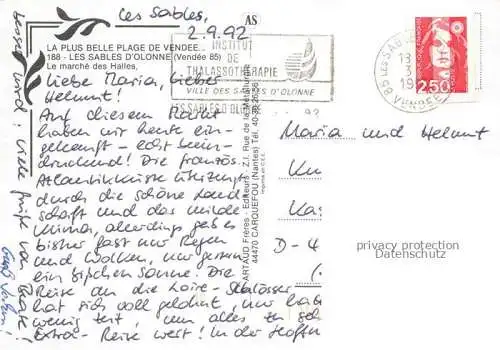 Les Sables,
2.9.92
AS
LA PLUS BELLE PLAGE DE VENDEE...
188 - LES SABLES D'OLONNE (Vendée 85)
Le marché des Halles,
INSTITUT
DE
THALASSOTHERAPIE
VILLE DES SABLES D'OLONNE
LES SABLES D'OL
92
85 LES SAB
13
3
19
VENDEE
2,50
Liebe Maria, lieber
Helmut!
Auf diesem Markt
haben wir heute ein-
gekauft - echt beein-
druckend! Die französ.
Atlantikküste überzeugt
durch die schöne Land-
schaft und das milde
Klima, allerdings gab es
bisher fast nur Regen
und Wolken, nur gestern
ein bißchen Sonne. Die
Reise an die Loire-Schlösser
hat sich voll gelohnt, nur
wenig Zeit, um alles zu
Extra-Reise wert! In der Hoffn
besser wird: viele Grüße von
ARTAUD Frères - Editeurs - Z.I. Rue de la Métallurgie
44470 CARQUEFOU (Nantes) Tél. 40.
Maria und Helmut
Ku
Ka
D-4
privacy protection
Datenschutz